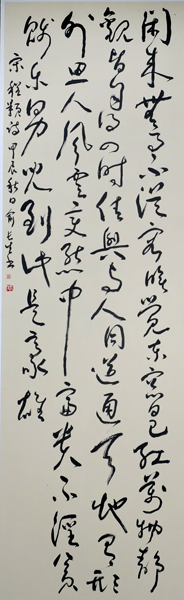 閑來無事不從容睡覺東窗日已紅萬物靜
觀皆自得四時佳興與人同道通天地有形
外思入風雲變態中富貴不淫貧
賤樂男兒到此是豪雄
宋程顥詩甲辰秋日俞